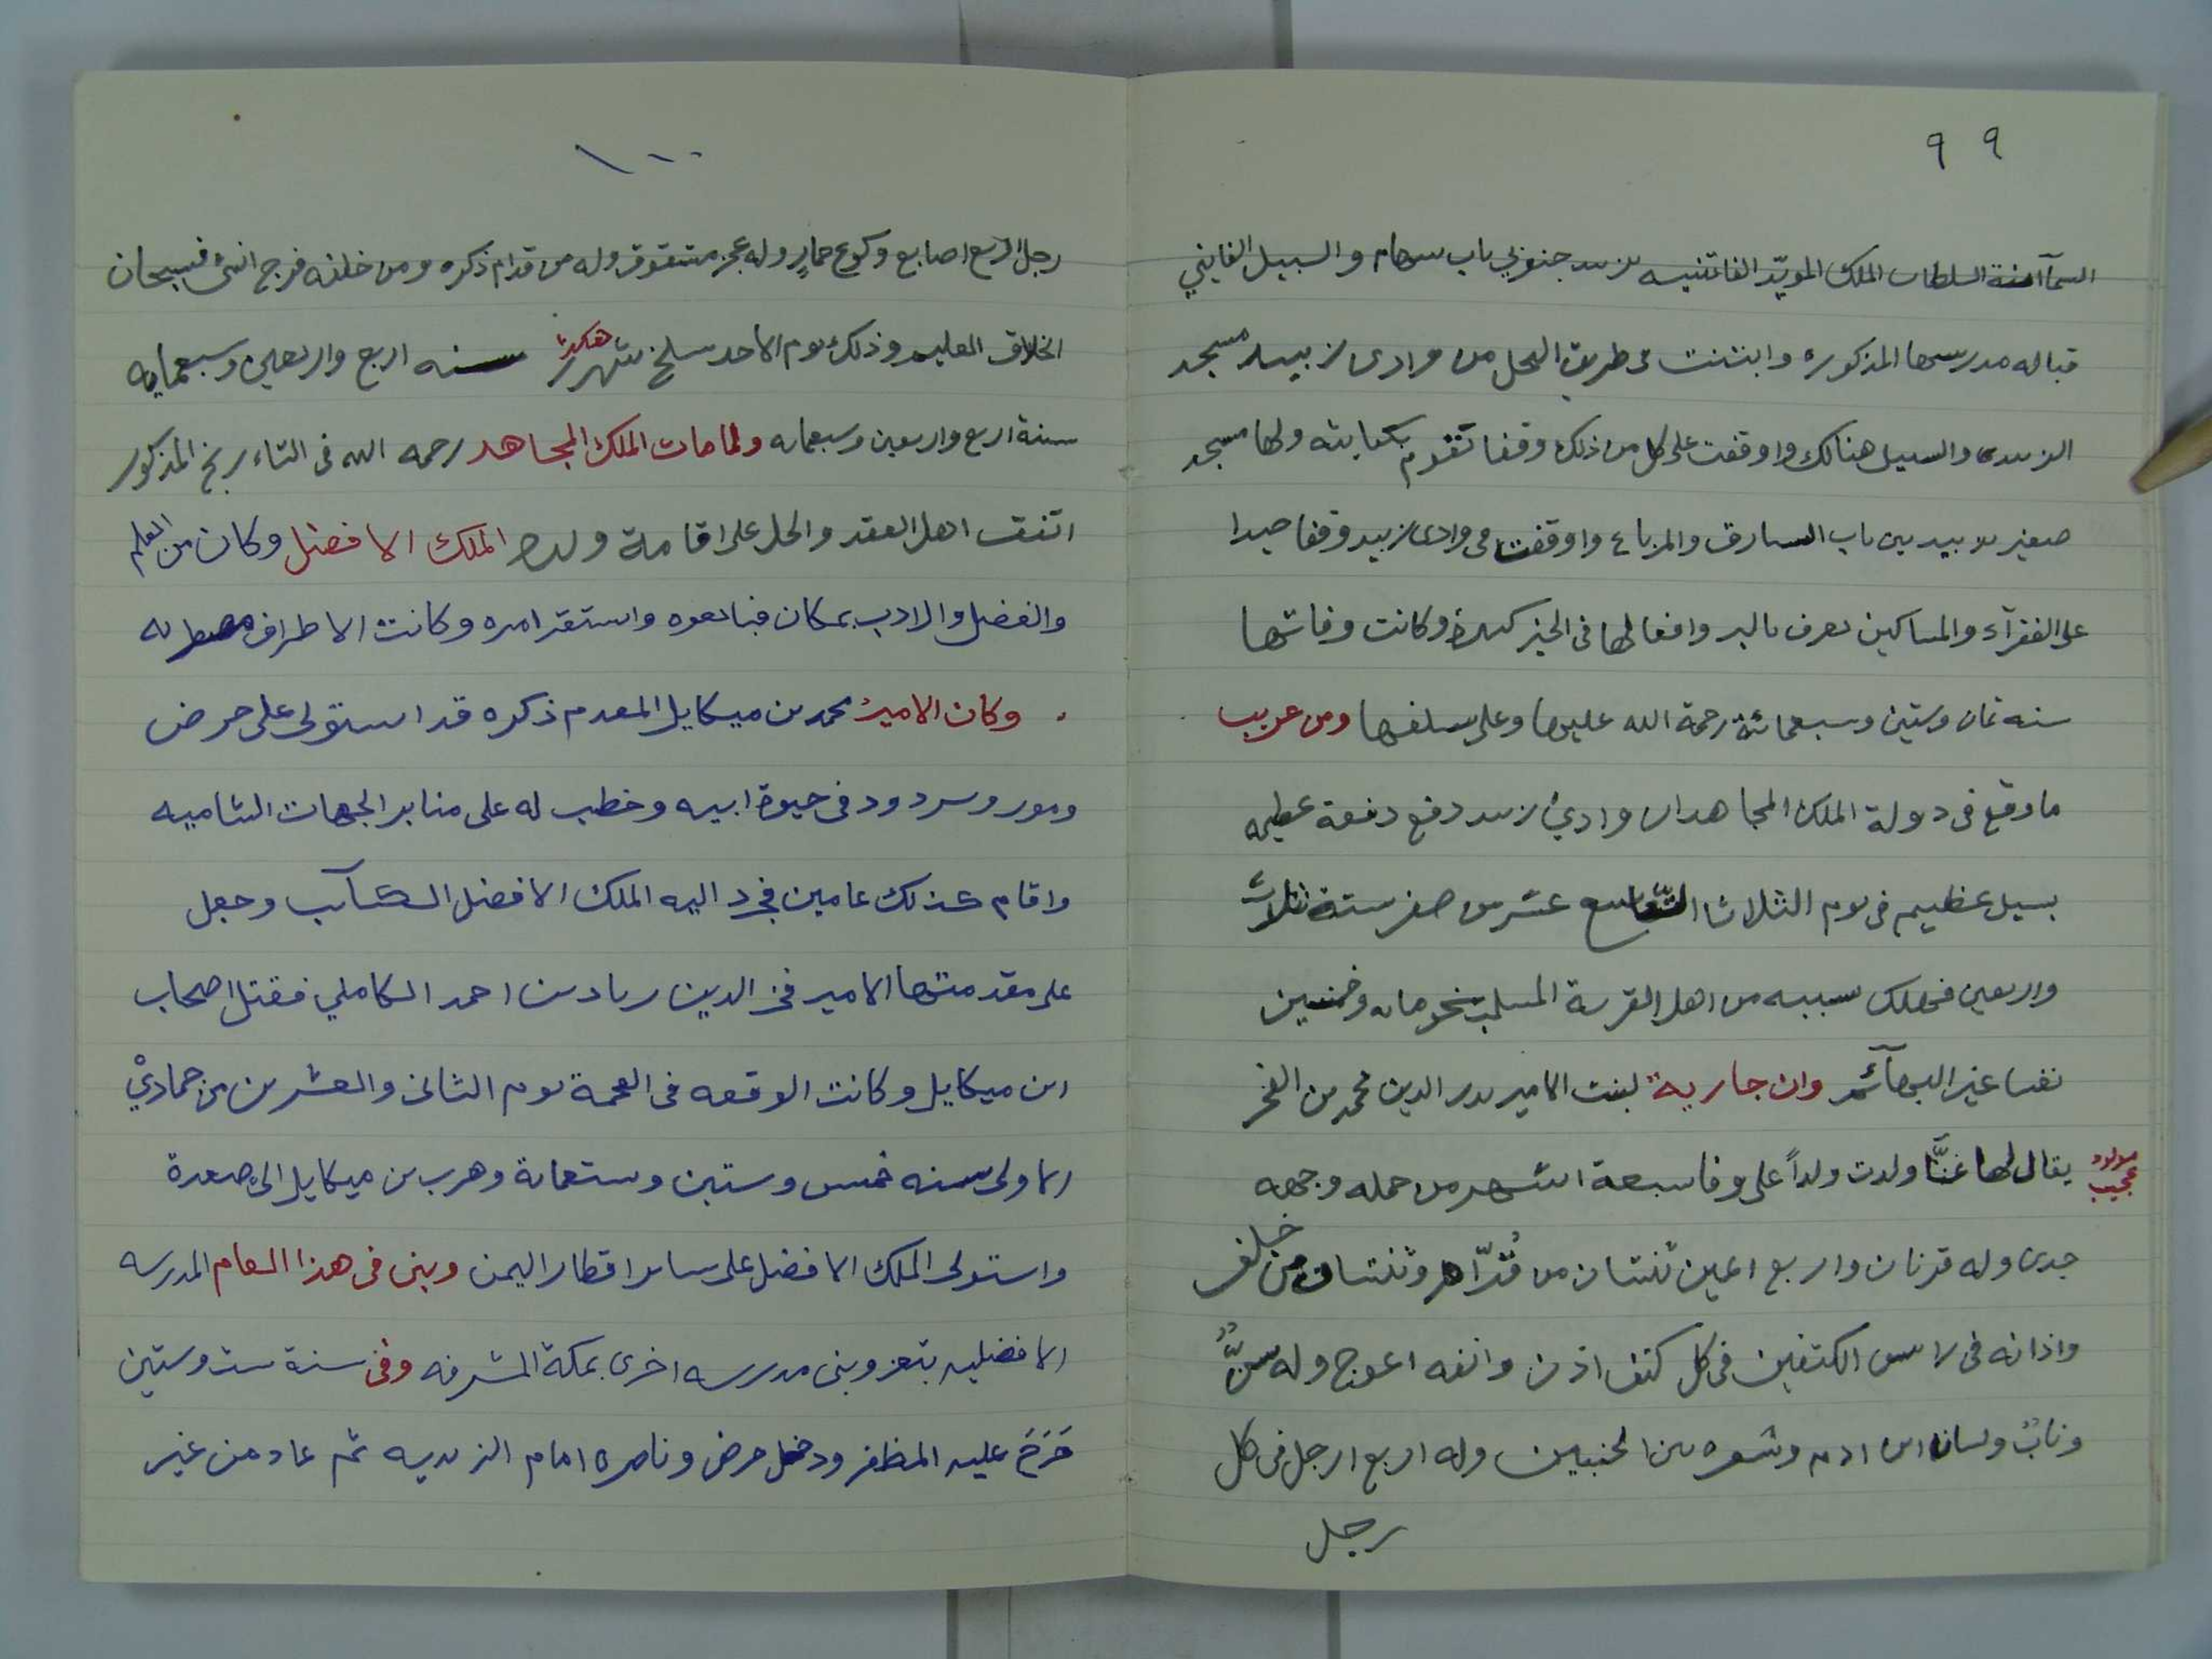 ٩٩
السمآ امنة السلطان الملك المويّد الفاتنيه بزبيد جنوبي باب سهام والسبيل الفايني
قباله مدرستها المذكوره وابتنت فى طريق النخل من وادى زبيد مسجد
الزبيدى والسبيل هنالك واوقفت على كل من ذلك وقفا تقوم بكفايته ولها مسجد
صغير بزبيد بين باب السارق والمرباع واوقفت فى وادى زبيد وقفا جيدا
على الفقرآء والمساكين يعرف بالبر وافعالها فى الخير كثيرة وكانت وفاتها
سنه ثمان وستين وسبعمائة رحمة الله عليها وعلى سلفها ومن غريب
ما وقع فى دولة الملك المجاهد ان وادي زبيد دفع دفعة عظيمه
بسيل عظيم فى يوم الثلاثا التاسع عشر من صفر سنة ثلاث
واربعين فهلك بسببه من اهل القرية المسلب نحو مايه وخمسين
نفسا غير البهآئم وان جارية لبنت الامير بدر الدين محمد بن الفخر
مولود عجيب
يقال لها غنَّا ولدت ولداً على وفا سبعة اشهر من حمله وجهه
جدى وله قرنان واربع اعين ثنتان من قُدّام وثنتان من خلف
واذانه فى راس الكتفين فى كل كتف اذن وانفه اعوج وله سنٌّ
ونابٌ ولسان ابن ادم وشعره بين الجنبين وله اربع ارجل فى كل
رجل
١٠٠
رجل اربع اصابع وكوع حمارٍ وله عجز مشقوق وله من قدام ذكره ومن خلفه فرج انثى فسبحان
الخلاق العليم وذلك يوم الاحد سلخ شهر هكذا سنه اربع واربعين وسبعمايه
سنة اربع واربعين وسبعمايه ولما مات الملك المجاهد رحمه الله فى التاءريخ المذكور
اتفق اهل العقد والحل على اقامة ولده الملك الافضل وكان من العلم
والفضل والادب بمكان فبايعوه واستقر امره وكانت الاطراف مضطربه
وكان الامير محمد بن ميكايل المقدم ذكره قد استولى على حرض
ومور وسردود فى حيوة ابيه وخطب له على منابر الجهات الشاميه
واقام كذلك عامين فجرد اليه الملك الافضل الكتآئب وجعل
على مقدمتها الامير فخر الدين زياد بن احمد الكاملي فقتل اصحاب
ابن ميكايل وكانت الوقعه فى القحمة يوم الثانى والعشرين من جمادي
الاولى سنه خمس وستين وستعماية وهرب بن ميكايل الى صعدة
واستولى الملك الافضل على ساير اقطار اليمن وبنى فى هذا العام المدرسه
الافضليه بتعز وبنى مدرسه اخرى بمكة المشرفه وفى سنة ست وستين
خَرَجَ عليه المظفر ودخل حرض وناصره امام الزيديه ثم عاد من غير